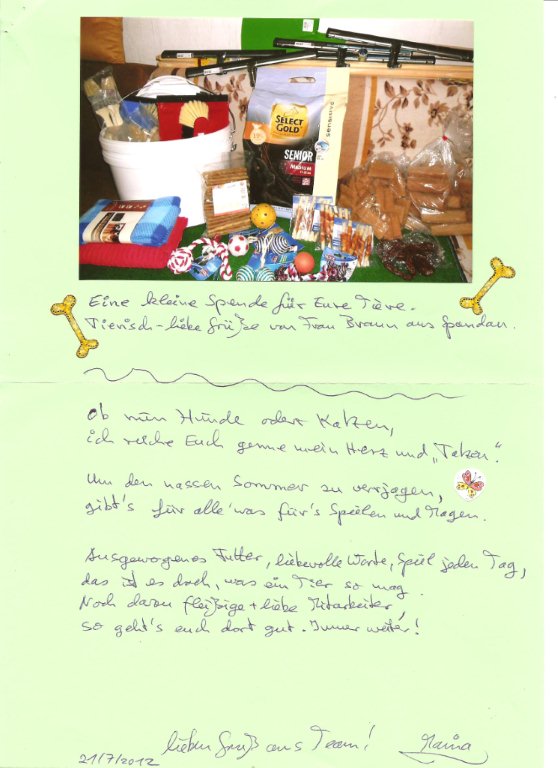 SELECT
GOLD
sensitive
SENIOR
Medium
Eine kleine Spende für Eure Tiere.
Tierisch-liebe Grüße von Frau Braun aus Spandau.
Ob nun Hunde oder Katzen,
ich reiche Euch gerne mein Herz und „Tatzen".
Um den nassen Sommer zu verjagen,
gibt's für alle 'was für's Spielen und Magen.
Ausgewogenes Futter, liebevolle Worte, Spiel jeden Tag,
das ist es doch, was ein Tier so mag.
Noch dazu fleißige + liebe Mitarbeiter,
so geht's euch dort gut. Immer weiter!
lieben Gruß ans Team!
21/7/2012